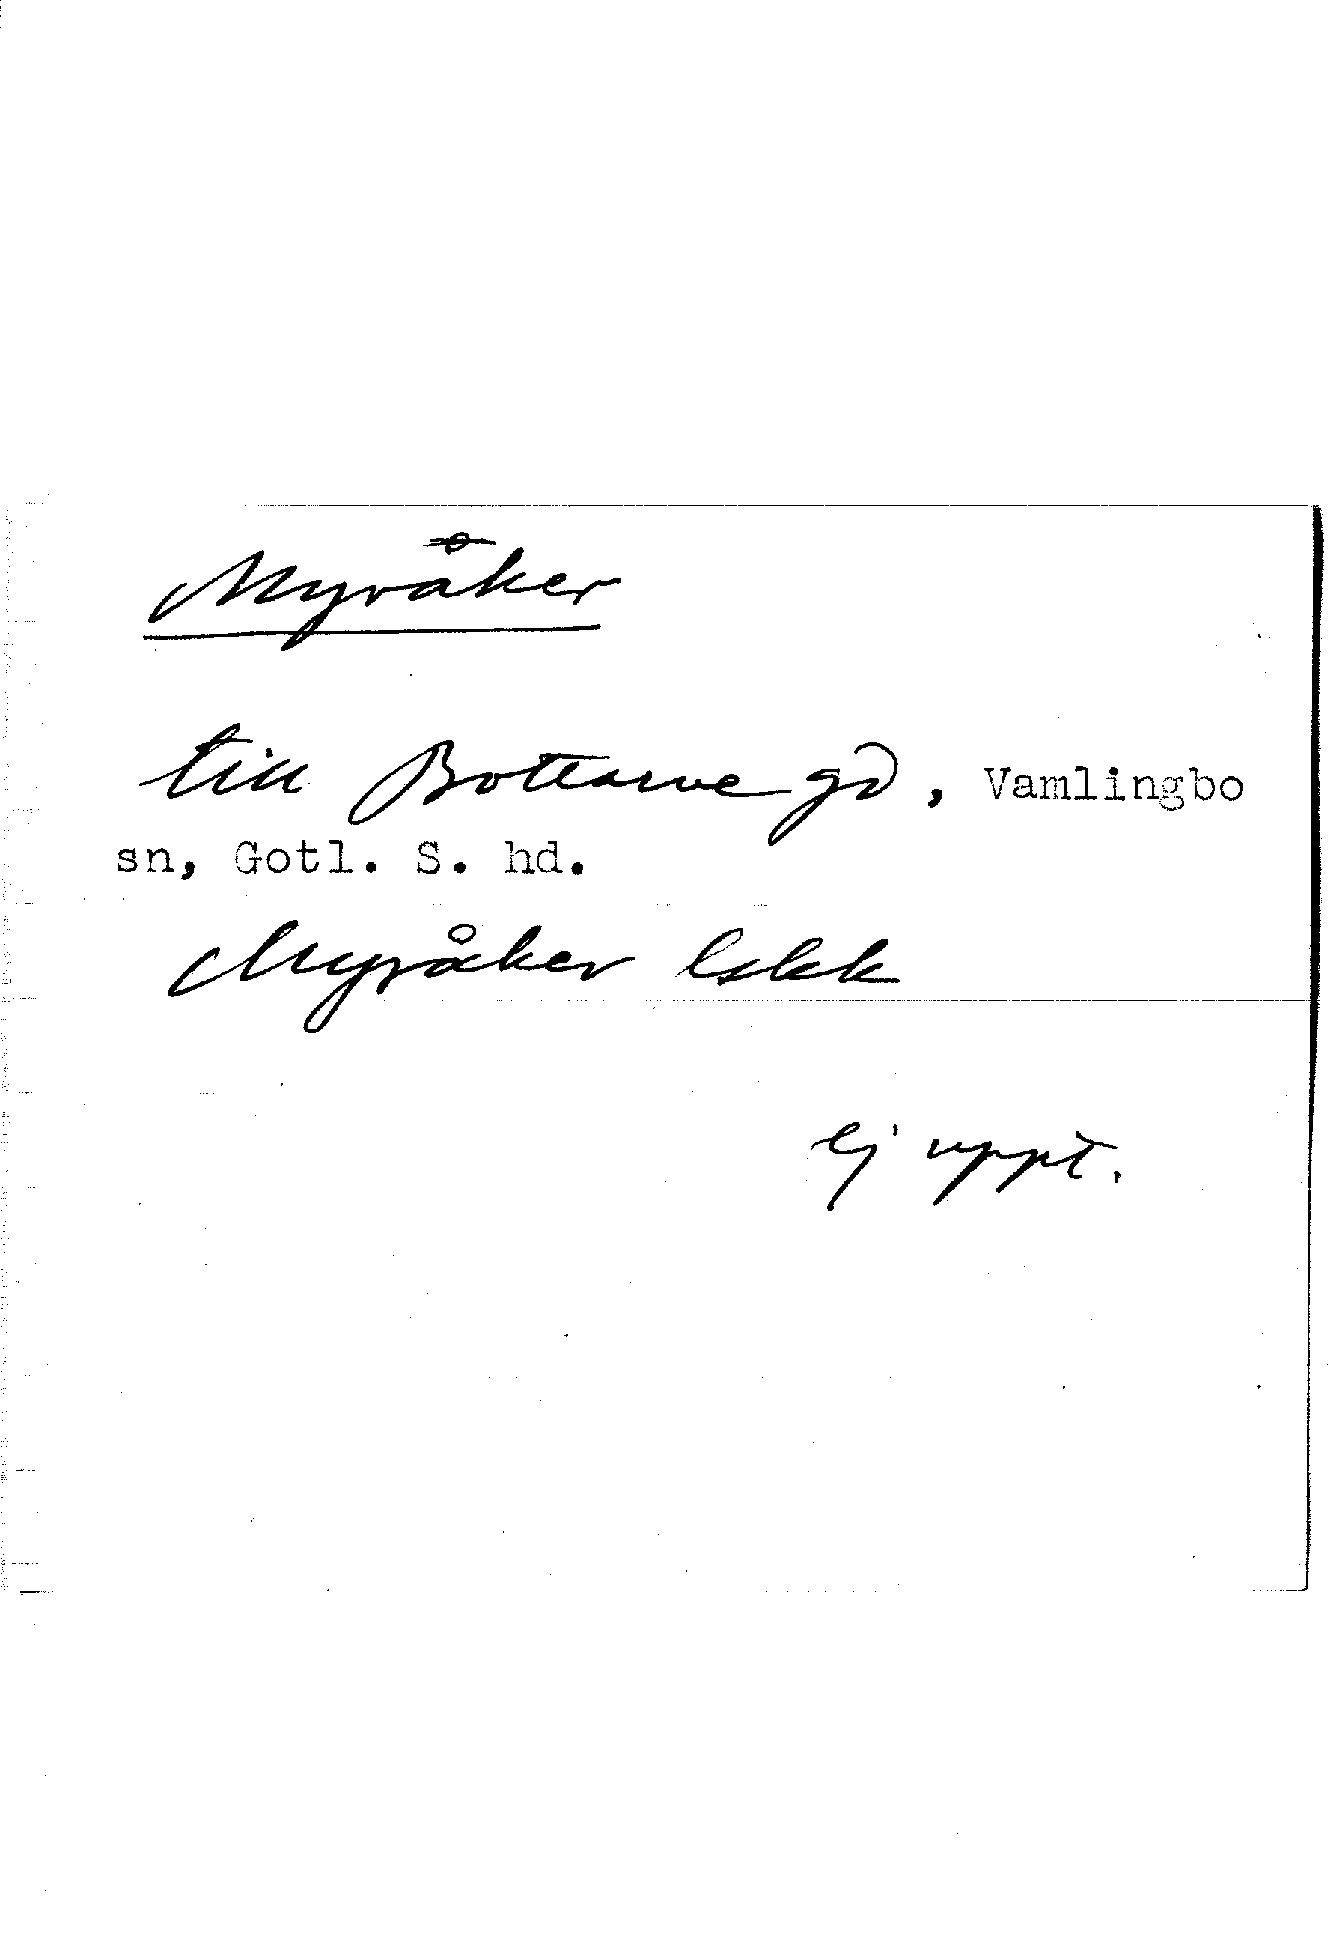 Myråker
till Bottarve gd, Vamlingbo
sn, Gotl. S. hd.
Myråker lskk
ej uppt.